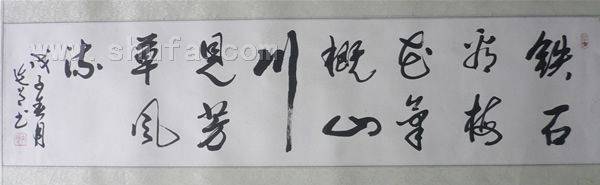 铁石
看梅
花氣
概山
川
見芳
草风
流
戊子春月
书
www.shufa.com